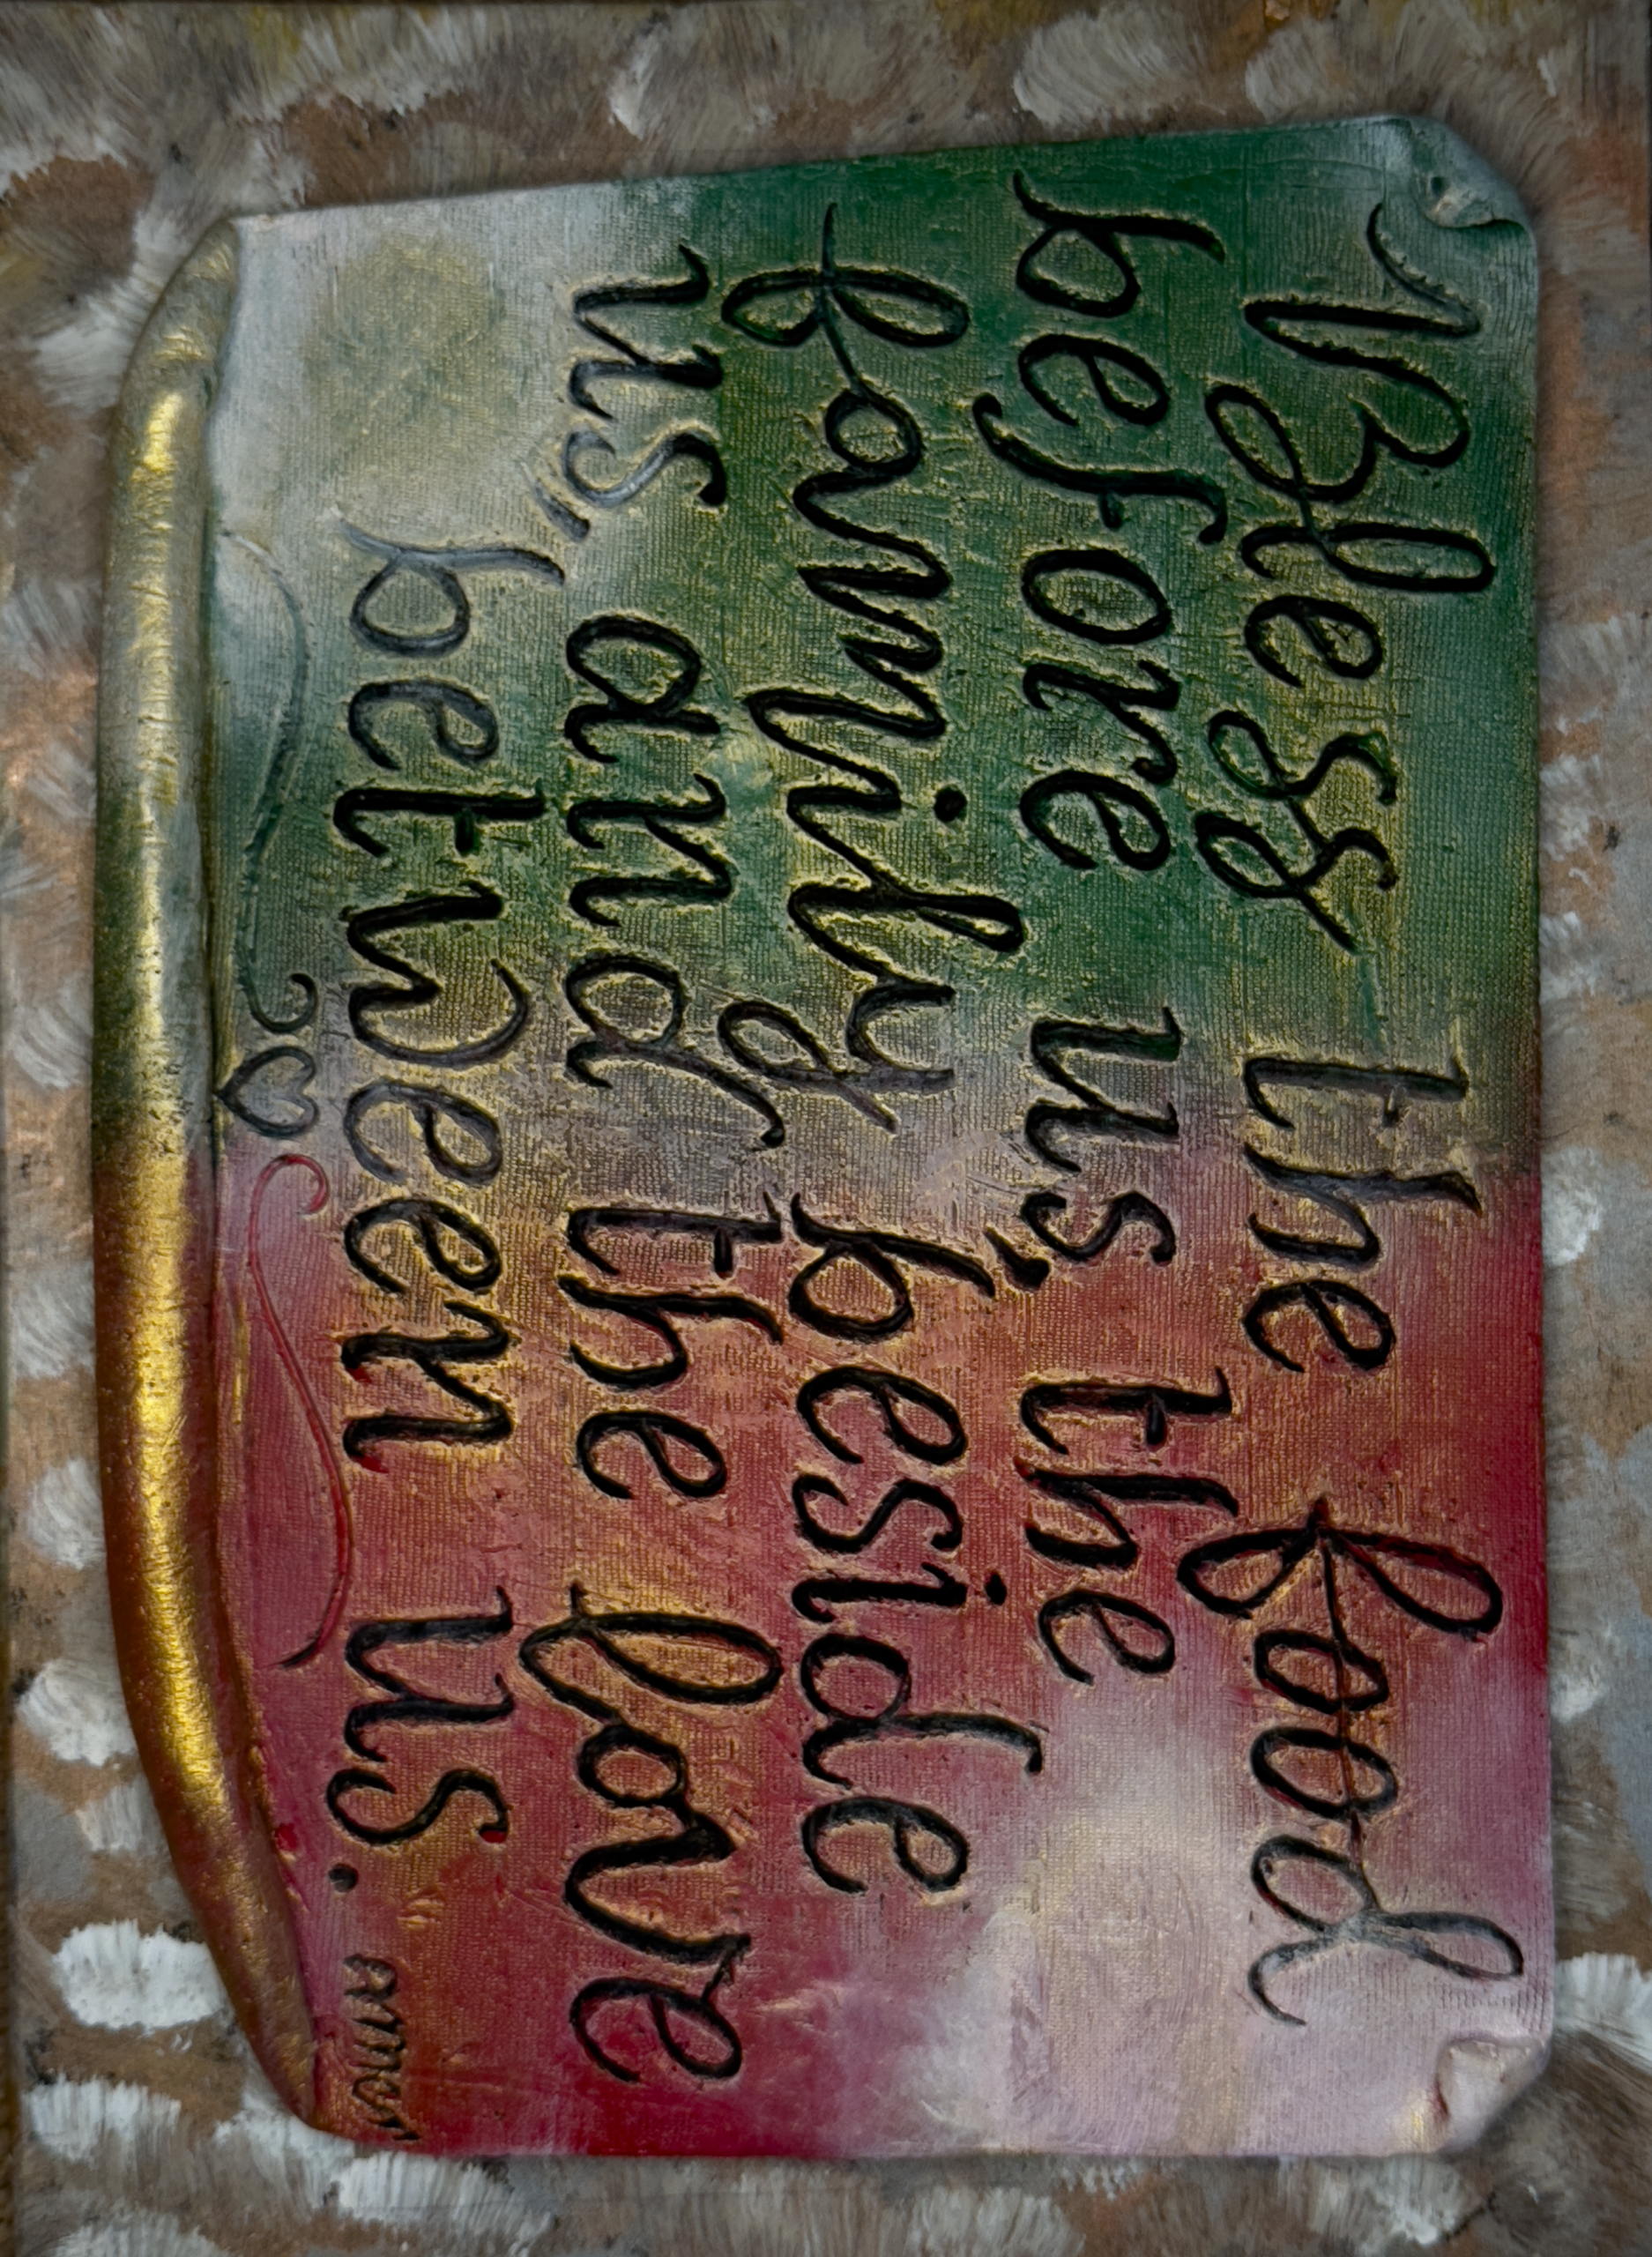 Bless the food
before us, the
family beside
us, and the love
between us.